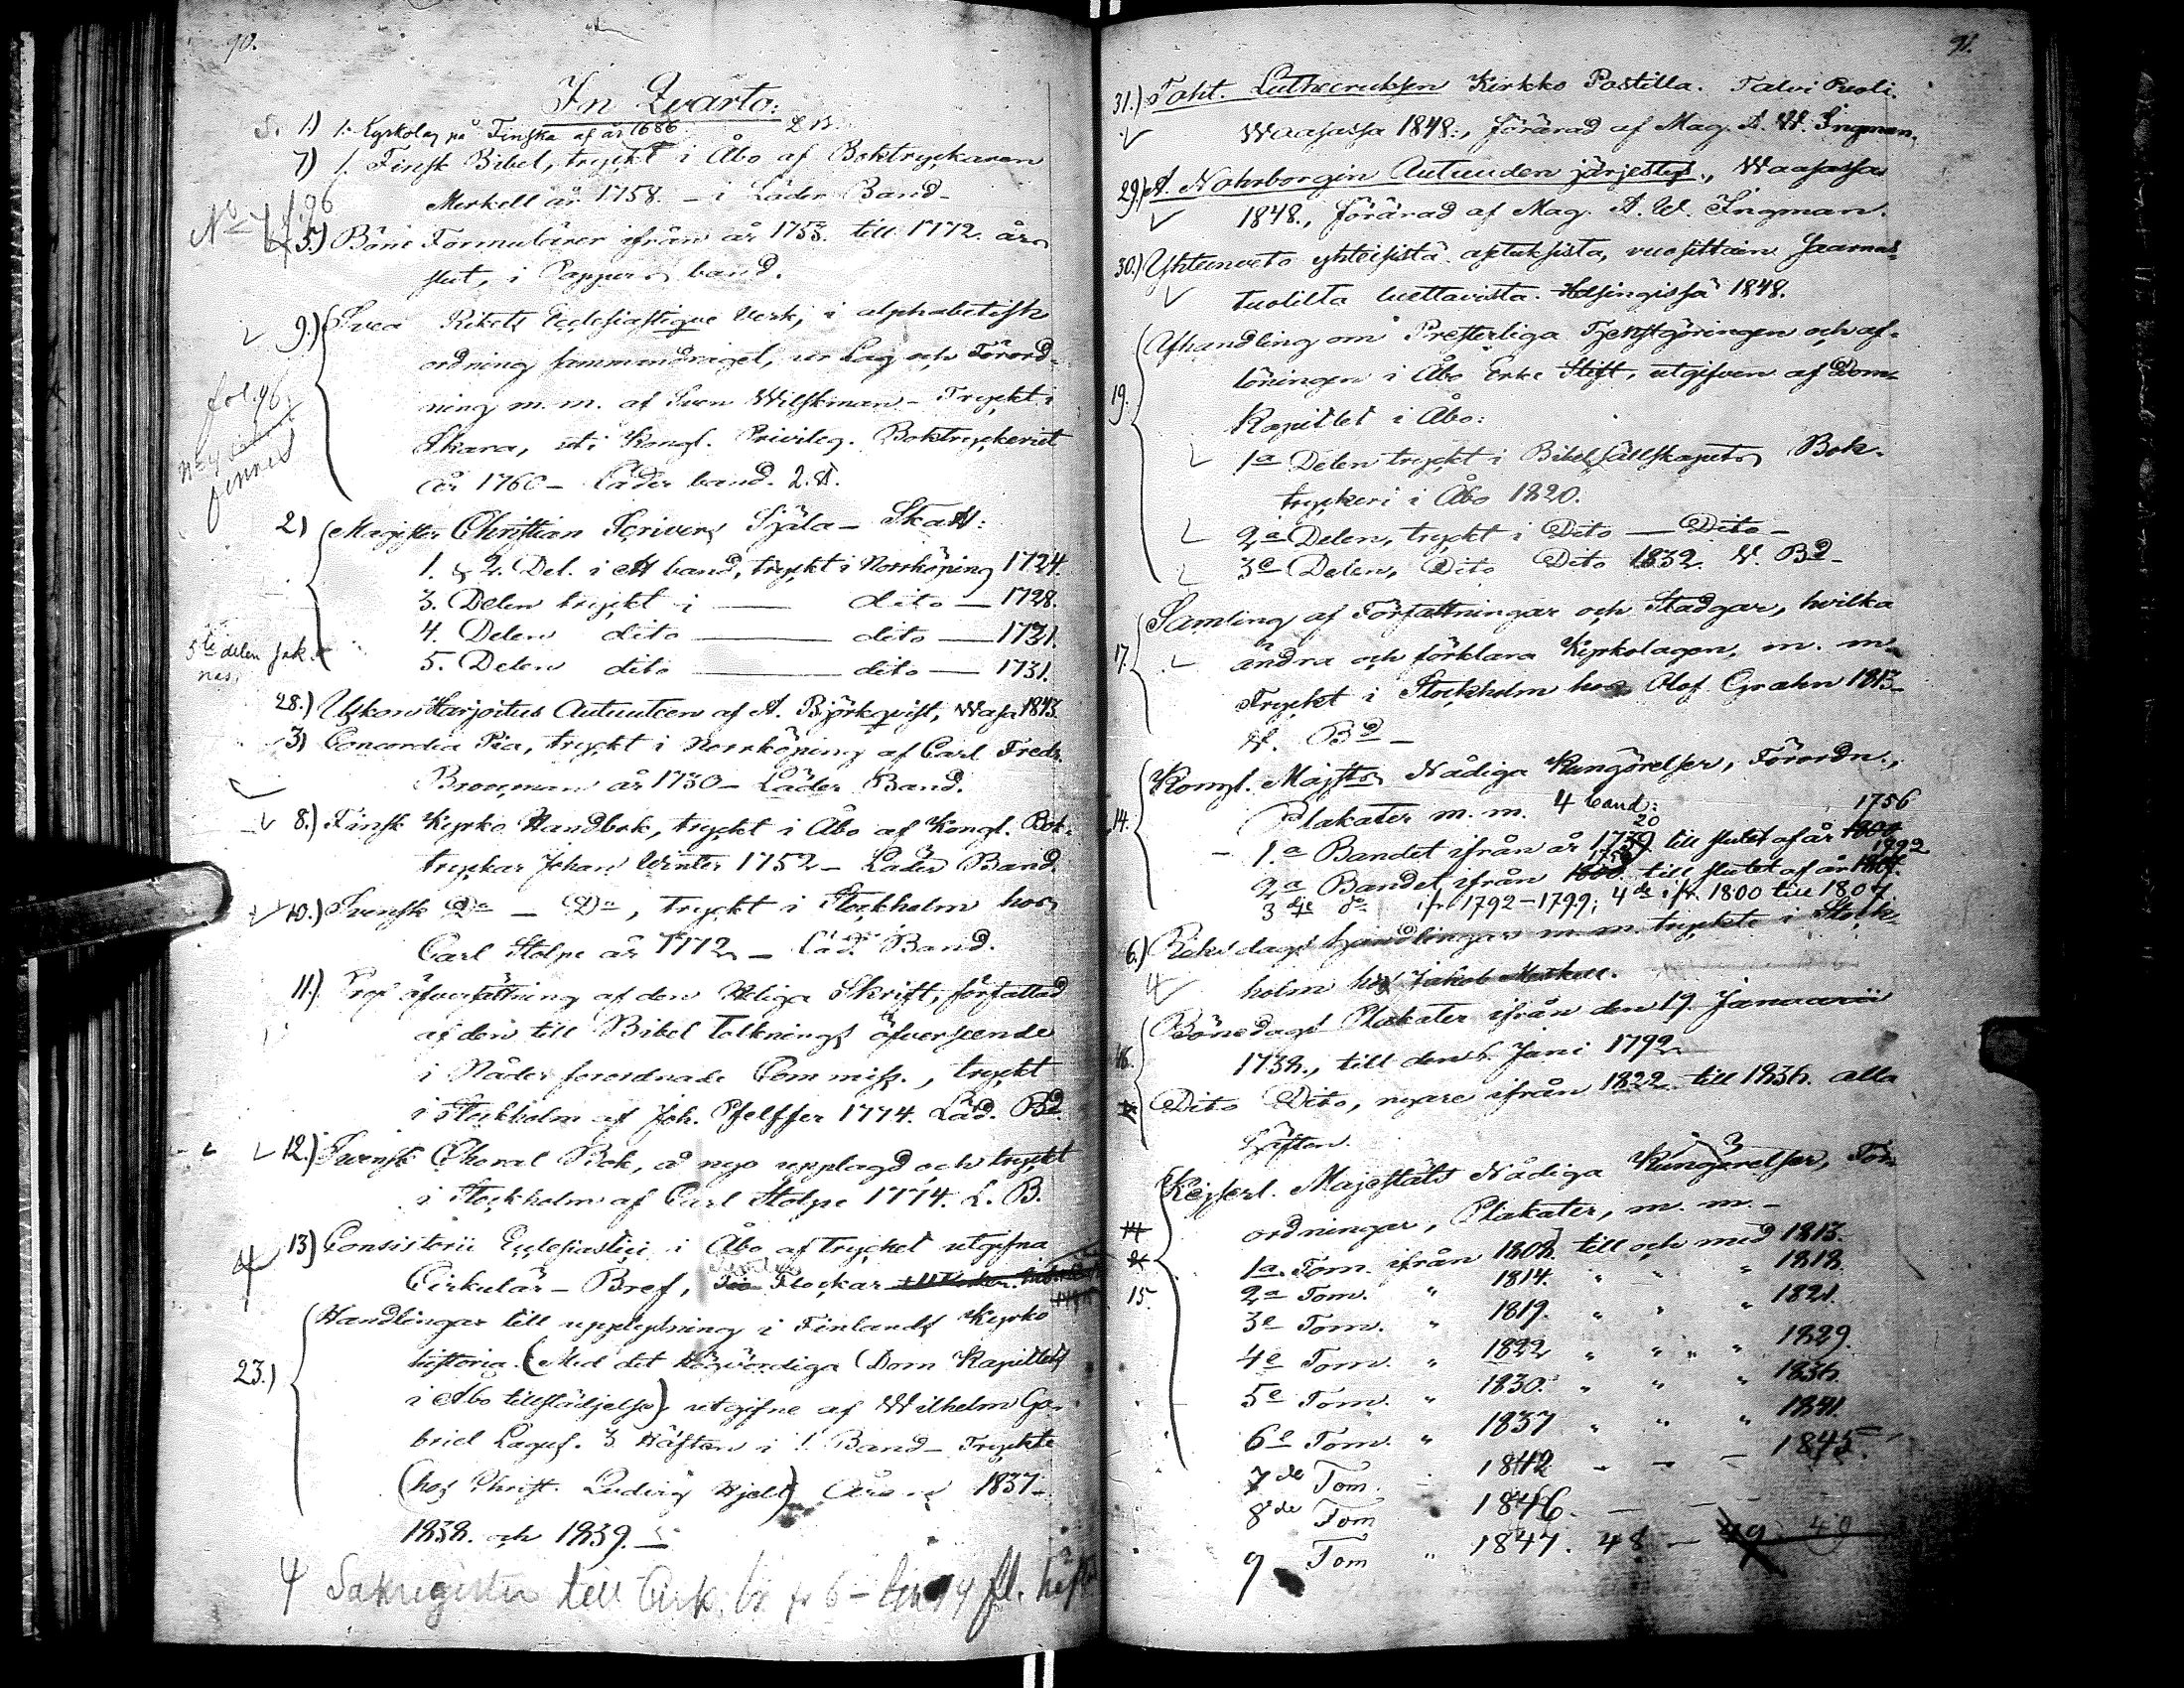 90.
In Qvarto:
1) 1. Kyrkolag på Finska af år 1686. L. B.
7) 1. Finsk Bibel, tryckt i Åbo af Boktryckaren
Merkell år 1758. - i Läder Band -
No 4 f. 96
5.) Böne Formulärer ifrån år 1753. till 1772. års
slut, i Pappers band.
9.) Svea Rikets Ecclesiastique Verk, i alphabetisk
ordning sammandraget, ur Lag och Förord-
ning m. m. af Sven Wilskman - Tryckt i
Skara, uti Kongl. Privileg. Boktryckeriet
år 1760 - Läder band. 2. St.
fol 96
finnes
2) Magister Christian Scrivers Själa - Skatt:
1. & 2. Del. i ett band, tryckt i Norrköping 1724.
3. Delen tryckt i — dito — 1728.
4. Delen dito — dito — 1731.
5. Delen dito — dito — 1731.
5te delen sak-
nas.
28.) Uskon Harjoitus Autuuteen af A. Björkqvist, Wasa 1843.
3) Concordia Pia, tryckt i Norrköping af Carl Fredr.
Broocman år 1730 - Läder Band.
8.) Finsk Kyrko Handbok, tryckt i Åbo af Kongl. Bok-
tryckar Johan Winter 1752 - Läder Band.
10.) Svensk Do - Do, Tryckt i Stockholm hos
Carl Stolpe år 1772 - Läd. Band.
11.) Prof öfversättning af den Heliga Skrift, författad
af den till Bibel Tolknings öfverseende
i Nåder förordnade Commiss., tryckt
i Stockholm af Joh. Pfeiffer 1774. Läd. Bd.
12.) Svensk Choral Bok, å nyo upplagd och tryckt
i Stockholm af Carl Stolpe 1774. L. B.
13) Consistorii Ecclesiastici i Åbo af Trycket utgifna
Cirkulär - Bref, Tio Flockar
23.) Handlingar till upplysning i Finlands Kyrko
historia. (Med det Högvördiga Dom Kapitlets
i Åbo tillstädjelse), utgifne af Wilhelm Ga-
briel Lagus. 3 Häften i 1. Band - Tryckte
(hos Christ. Ludvig Hjelt) Åren 1837 -
1838. och 1839.
4 Sakregister till Cirk. br.
91.
31.) Toht. Lutheruksen Kirkko Postilla. Talvi Puoli.
Waasassa 1848., förärad af Mag. A. W. Ingman.
29.) A. Nohrborgin Autuuden järjestys., Waasassa
1848., förärad af Mag. A. W. Ingman.
30.) Yhteenveto yhteisistä asetuksista, vuosittain Saarnas-
tuolilta luettavista. Helsingissä 1848.
19. Afhandling om Presterliga Tjenstgöringen och af-
löningen i Åbo Erke Stift, utgifven af Dom-
Kapitlet i Åbo:
1a Delen tryckt i Bibelsällskapets Bok-
tryckeri i Åbo 1820.
2a Delen, tryckt i Dito — Dito -
3e Delen, Dito Dito 1832. Bd -
17. Samling af Författningar och Stadgar, hvilka
ändra och förklara Kyrkolagen, m. m.
Tryckt i Stockholm hos Olof Grahn 1813 -
Bd -
14. Kongl. Majsts Nådiga Kungörelser, Förordn.,
Plakater m. m. 4 band:
1.a Bandet ifrån år till slutet af år 1756
2a Bandet ifrån till slutet af år 1792
3dje do ifr 1792 - 1799; 4de ifr. 1800 till 1807
6.) Riksdags Handlingar m. m. tryckte i Stock-
holm hos Jakob Merkell.
16. Bönedags Plakater ifrån den 19. Januarii
1738., till den 6. Juni 1792
Dito Dito, nyare ifrån 1822 till 1836. alla
häften.
Kejserl. Majestäts Nådiga Kungörelser, För-
ordningar, Plakater, m. m. -
14
15.
1a Tom. ifrån 1808 till och med 1813.
2a Tom. " 1814. " " " 1818.
3e Tom. " 1819. " " " 1821.
4e Tom. " 1822 " " " 1829.
5e Tom. " 1830. " " " 1836.
6e Tom. " 1837 " " " 1841.
7de Tom. - 1842 - - - 1845.
8de Tom " 1846. -
9 Tom " 1847. 48 - 49